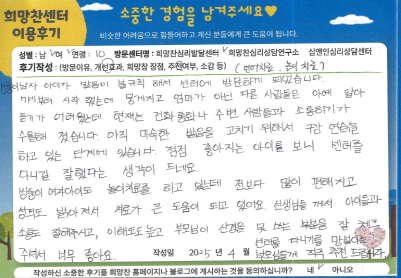 희망찬센터
이용후기
소중한 경험을 남겨주세요
비슷한 어려움으로 힘들어하고 계신 분들에게 큰 도움이 됩니다.
성별 : 남 여 연령 : 10 방문센터명 : 희망찬심리발달센터 희망찬심리상담연구소 삼앤인심리상담센터
후기작성 : (방문이유, 개선효과, 희망찬 장점, 추천여부, 소감 등) (언어치료, 놀이치료)
남자 아이가 발음이 불규칙 해서 센터에 방문하게 되었습니다.
시작 했는데 엄마가 아닌 다른 사람들은 아예 알아
듣기가 어려웠는데 현재는 친화 주변 사람들과 소통하기가
수월해 졌습니다. 아직 미숙한 발음을 고치기 위해서 구강 연습을
하고 있는 단계에 있습니다. 점점 좋아지는 아이를 보니 센터를
다니길 잘했다는 생각이 드네요
여자아이도 놀이치료를 하고 있는데 전보다 많이 편해지고
성격도 밝아져서 치료가 큰 도움이 되고 있어요. 선생님들 께서 아이들과
소통도 잘해주시고, 이해도도 높고 부모님이 신경을 못 쓰는 부분을 잘
주셔서 너무 좋아요.
센터를 다니기를 망설이는
부모님들께 적극 추천 드려요
작성일 2025 년 4 월
작성하신 소중한 후기를 희망찬 홈페이지나 블로그에 게시하는 것을 동의하십니까? 네 아니오